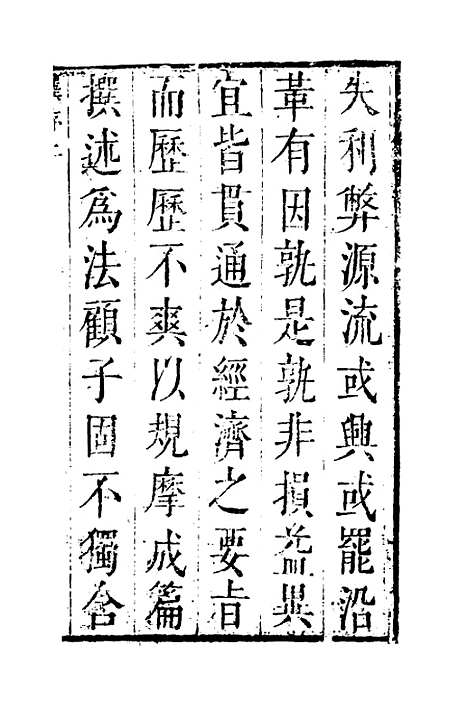 失利弊源流或興或罷沿
革有因孰是孰非損益異
宜皆貫通於經濟之要旨
而歷歷不爽以規摩成篇
撰述爲法顧子固不獨含